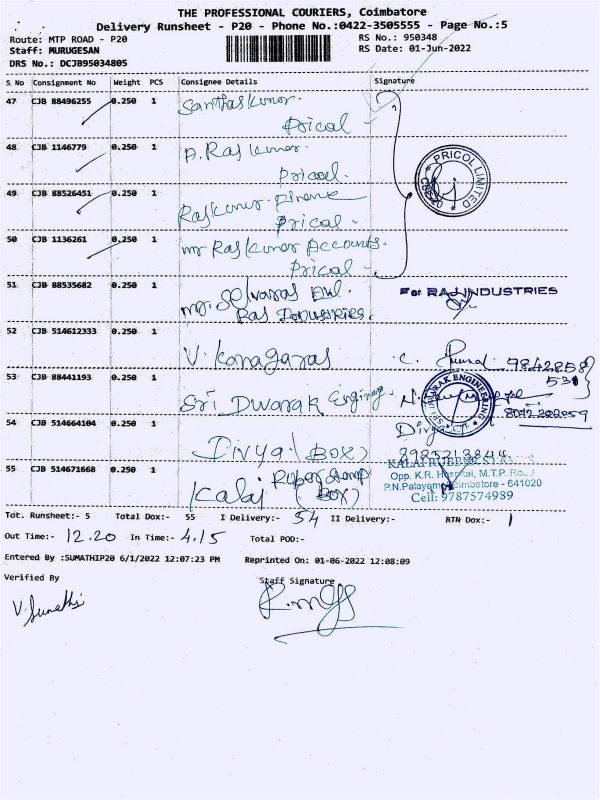 THE PROFESSIONAL COURIERS, Coimbatore
Delivery Runsheet - P20 - Phone No.:0422-3505555 - Page No.:5
Route: MTP ROAD - P20 RS No.: 950348
Staff: MURUGESAN RS Date: 01-Jun-2022
DRS No.: DCJB95034805
S No Consignment No Weight PCS Consignee Details Signature
47 CJB 88496255 0.250 1 Santhaskumar.
Pricol
48 CJB 1146779 0.250 1 P. Raj kumar.
Pricol.
PRICOL LIMITED
49 CJB 88526451 0.250 1 Rajkumar. Finance
Pricol.
50 CJB 1136261 0.250 1 mr Rajkumar Accounts.
Pricol
51 CJB 88535682 0.250 1 mr. Selvaraj
Raj Industries.
For RAJ INDUSTRIES
52 CJB 514612333 0.250 1 V. Kanagaraj
53 CJB 88441193 0.250 1 Sri Dwarak Engineg.
DWARAK ENGINEERING
54 CJB 514664104 0.250 1 Divya (BOX) Divya
55 CJB 514671668 0.250 1 Kalai Rubber stamp
(BOX)
KALAI RUBBER STAMPS
Opp. K.R. Hospital, M.T.P. Road
P.N.Palayam, Coimbatore - 641020
Cell: 9787574989
Tot. Runsheet:- 5 Total Dox:- 55 I Delivery:- 54 II Delivery:- RTN Dox:- 1
Out Time:- 12.20 In Time:- 4.15 Total POD:-
Entered By :SUMATHIP20 6/1/2022 12:07:23 PM Reprinted On: 01-06-2022 12:08:09
Verified By Staff Signature
V. Sumathi